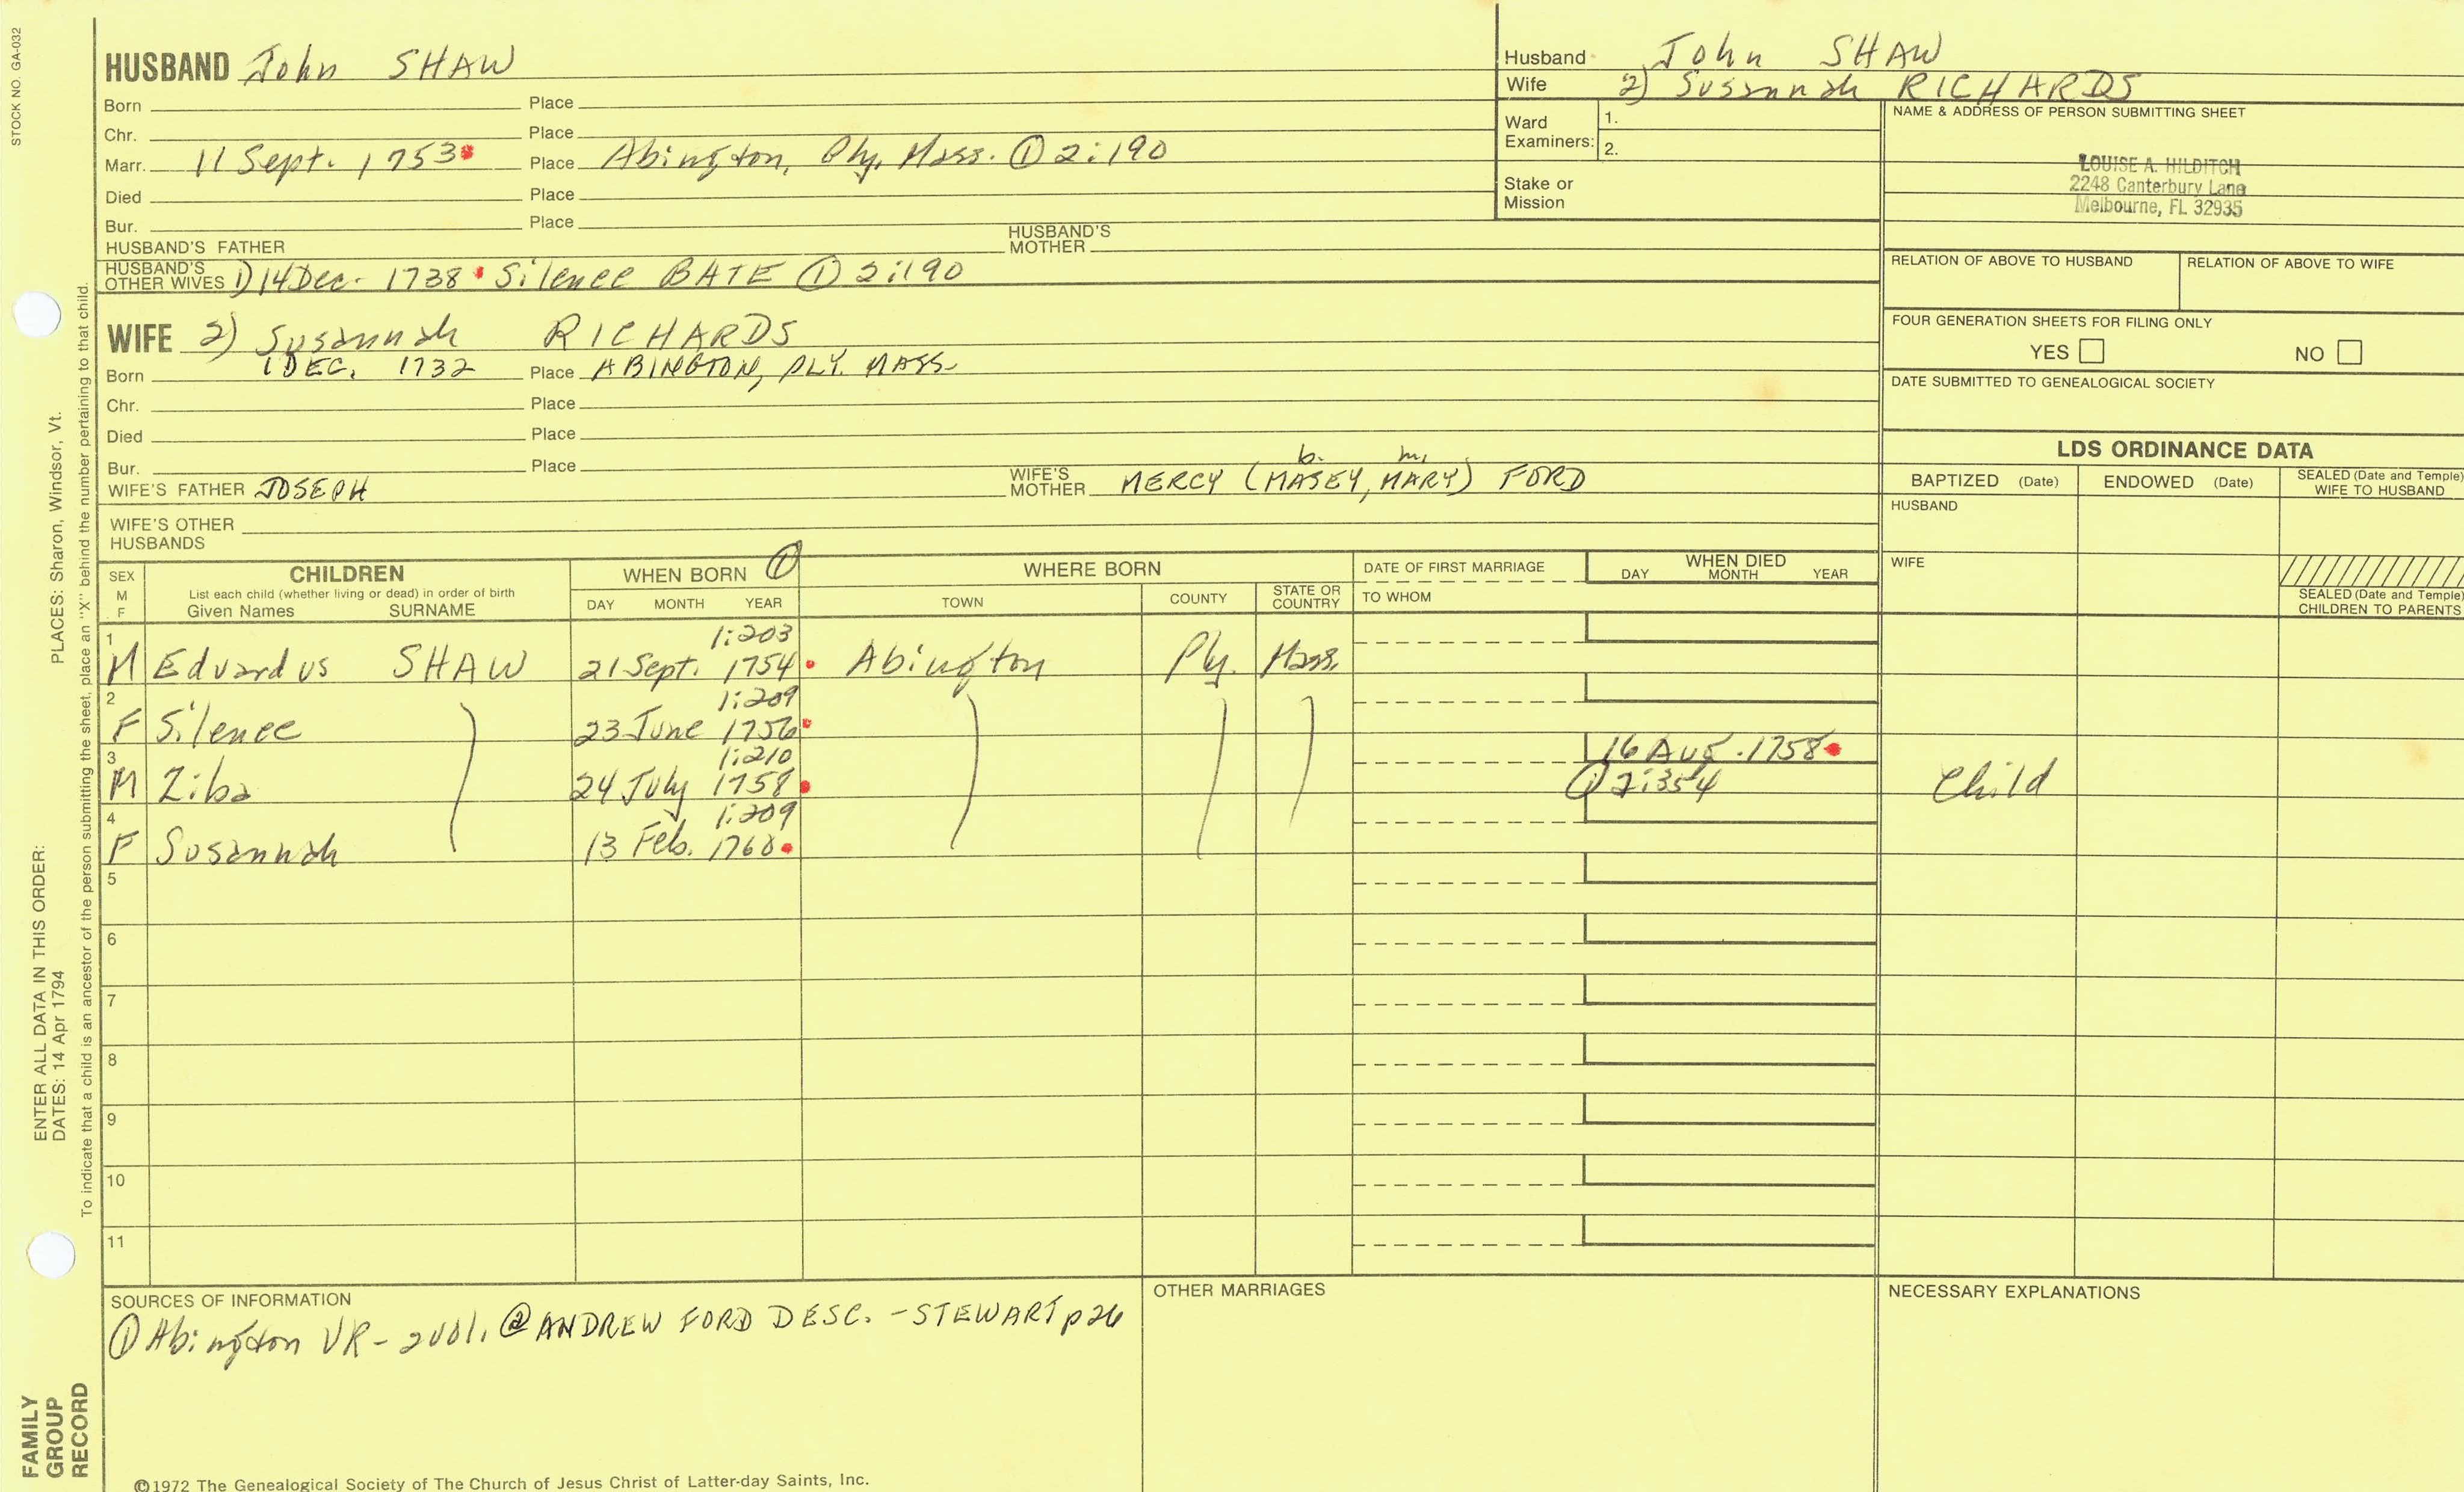 STOCK NO. GA-032
HUSBAND John SHAW
Born Place
Chr. Place
Marr. 11 Sept. 1753 Place Abington, Ply, Mass. ① 2:190
Died Place
Bur. Place
HUSBAND'S FATHER HUSBAND'S MOTHER
HUSBAND'S OTHER WIVES 1) 14 Dec. 1738 Silence BATE ① 2:190
Husband John SHAW
Wife 2) Susannah RICHARDS
Ward Examiners: 1.
2.
Stake or Mission
NAME & ADDRESS OF PERSON SUBMITTING SHEET
LOUISE A. HILDITCH
2248 Canterbury Lane
Melbourne, FL 32935
RELATION OF ABOVE TO HUSBAND RELATION OF ABOVE TO WIFE
FOUR GENERATION SHEETS FOR FILING ONLY
YES NO
DATE SUBMITTED TO GENEALOGICAL SOCIETY
WIFE 2) Susannah RICHARDS
Born 1 DEC. 1732 Place ABINGTON, PLY. MASS.
Chr. Place
Died Place
Bur. Place
b. m.
WIFE'S FATHER JOSEPH WIFE'S MOTHER MERCY (MASEY, MARY) FORD
WIFE'S OTHER HUSBANDS
LDS ORDINANCE DATA
BAPTIZED (Date) ENDOWED (Date) SEALED (Date and Temple) WIFE TO HUSBAND
HUSBAND
WIFE
SEALED (Date and Temple) CHILDREN TO PARENTS
SEX M F
CHILDREN
List each child (whether living or dead) in order of birth
Given Names SURNAME
WHEN BORN ①
DAY MONTH YEAR
WHERE BORN
TOWN COUNTY STATE OR COUNTRY
DATE OF FIRST MARRIAGE
TO WHOM
WHEN DIED
DAY MONTH YEAR
1 1:203
M Edvardus SHAW 21 Sept. 1754 Abington Ply. Mass.
2 1:209
F Silence 23 June 1756
3 1:210 16 Aug. 1758
M Ziba 24 July 1758 ① 2:354 Child
4 1:209
F Susannah 13 Feb. 1760
5
6
7
8
9
10
11
SOURCES OF INFORMATION
① Abington VR - 2 vol. @ ANDREW FORD DESC. - STEWART p26
OTHER MARRIAGES
NECESSARY EXPLANATIONS
©1972 The Genealogical Society of The Church of Jesus Christ of Latter-day Saints, Inc.
ENTER ALL DATA IN THIS ORDER:
DATES: 14 Apr 1794 PLACES: Sharon, Windsor, Vt.
To indicate that a child is an ancestor of the person submitting the sheet, place an "X" behind the number pertaining to that child.
FAMILY
GROUP
RECORD